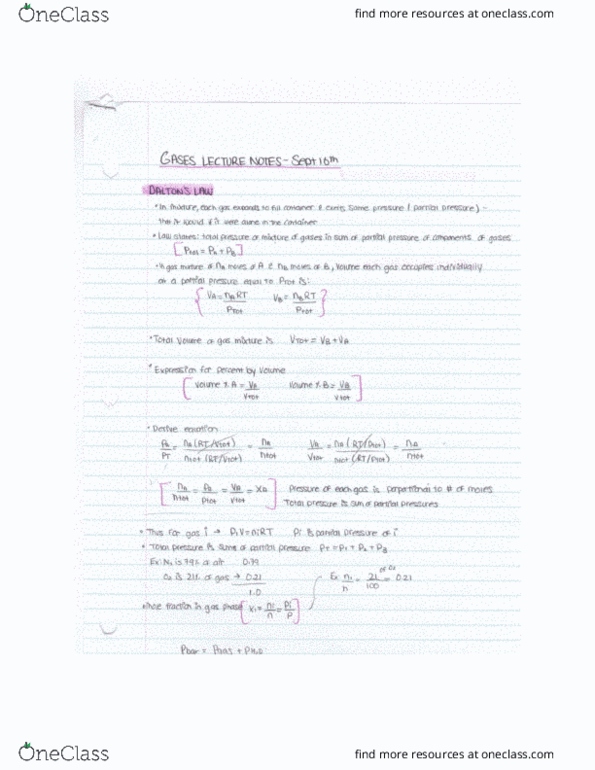 OneClass
find more resources at oneclass.com
GASES LECTURE NOTES - Sept 16th
DALTON'S LAW
• In mixture, each gas expands to fill container & exerts same pressure (partial pressure) -
that it would if it were alone in the container
• Law states: total pressure of mixture of gases is sum of partial pressure of components of gases
[Ptot = PA + PB]
• If gas mixture of nA moles of A & nB moles of B, volume each gas occupies individually
at a partial pressure equal to Ptot is:
{ VA = nART / Ptot VB = nBRT / Ptot }
• Total volume of gas mixture is VTOT = VB + VA
• Expression for percent by volume
[ Volume % A = VA / VTOT Volume % B = VB / VTOT ]
• Derive equation
PA / PT = nA (RT/Vtot) / ntot (RT/Vtot) = nA / ntot VA / Vtot = nA (RT/Ptot) / ntot (RT/Ptot) = nA / ntot
[ nA / ntot = PA / Ptot = VA / Vtot = XA ] Pressure of each gas is proportional to # of moles
Total pressure is sum of partial pressures
• Thus for gas i → PiV = niRT Pi is partial pressure of i
• Total pressure is sum of partial pressure PT = P1 + P2 + P3
Ex: N2 is 79% of air 0.79
O2 is 21% of gas → 0.21
1.0
Ex ni / n = 21 / 100 = 0.21
of O2
• Mole fraction in gas phase [ Xi = ni / n = Pi / P ]
Pbar = Pgas + PH2O
OneClass
find more resources at oneclass.com